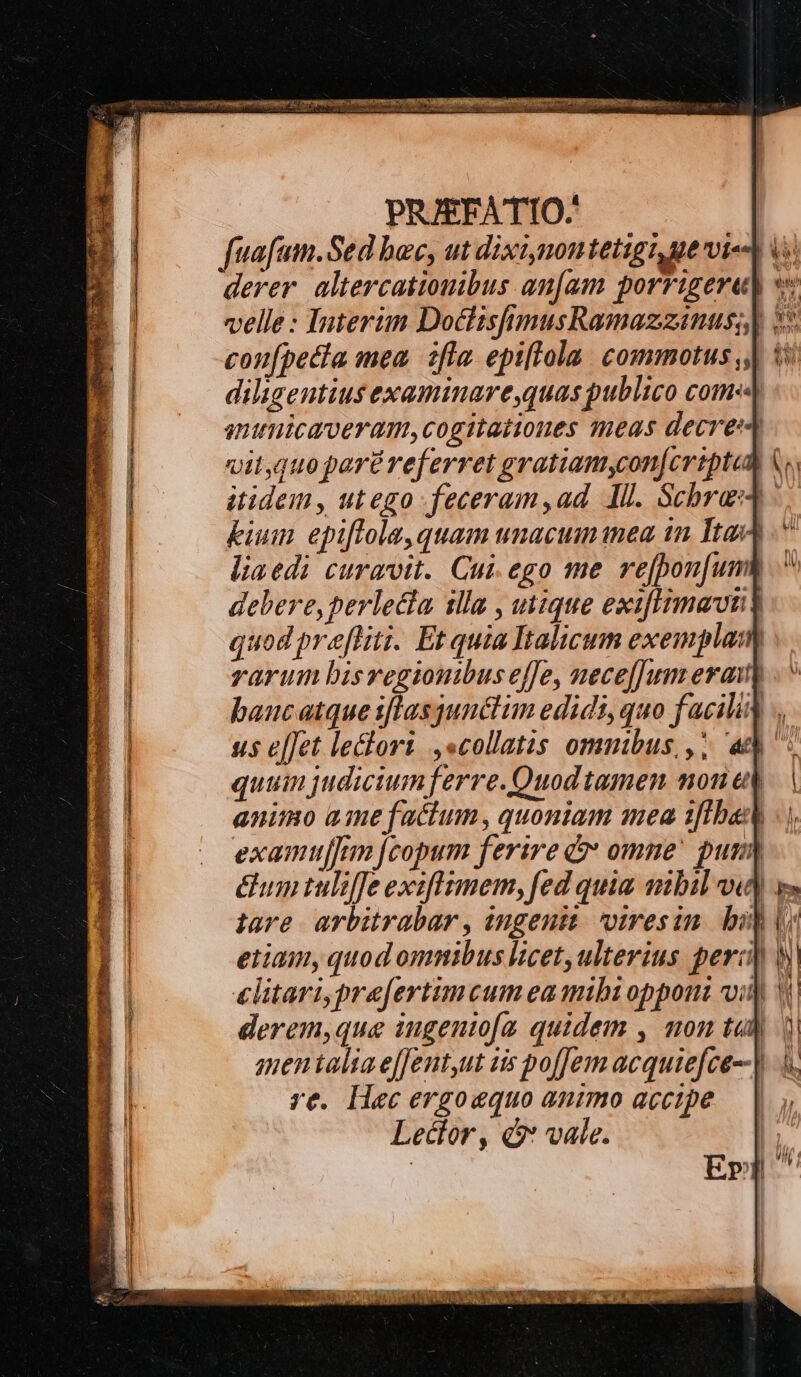 PRÆFATIO.
ſuaſum. Sed hæc, ut dixi, non tetigi, ne vi-
derer altercationibus anſam porrigere
velle: Interim Doctisſimus Ramazzinus,
conſpecta mea iſta epiſtola commotus,
diligentius examinare, quas publico com-
municaveram, cogitationes meas decre-
vit, quo parē referret gratiam, conſcripta
itidem, ut ego feceram, ad Ill. Schræ-
kium epiſtola, quam unacum mea in Ita-
lia edi curavit. Cui ego me reſponſum
debere, perlecta illa, utique exiſtimavi
quod præſtiti. Et quia Italicum exemplar
rarum his regionibus eſſe, neceſſum erat
hanc atque iſtas junctim edidi, quo facili
us eſſet lectori, collatis omnibus,
quum judicium ferre. Quod tamen non eo
animo a me factum, quoniam mea iſthæc
examuſſim ſcopum ferire & omne pun-
ctum tuliſſe exiſtimem, ſed quia nihil ve-
tare arbitrabar, ingenii vires in his
etiam, quod omnibus licet, ulterius peri-
clitari, præſertim cum ea mihi opponi vi-
derem, quæ ingenioſa quidem, non ta-
men talia eſſent, ut iis poſſem acquieſce-
re. Hæc ergo æquo animo accipe
Lector, & vale.